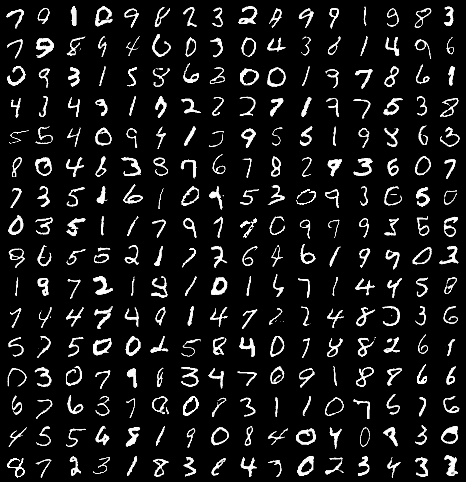 7 9 1 0 9 8 2 3 2 8 9 9 1 9 8 3
7 9 8 9 4 0 0 3 0 4 3 8 1 4 9 6
0 9 3 1 5 8 6 3 0 0 1 9 7 8 6 1
4 3 4 9 1 7 2 2 2 7 1 9 7 5 3 8
5 5 4 0 9 4 1 5 9 5 5 1 9 8 6 3
8 0 4 6 3 8 7 6 7 8 2 9 3 6 0 7
7 3 5 1 6 1 0 9 5 3 0 9 3 0 5 0
0 3 5 1 1 7 9 7 7 0 9 9 9 3 5 6
9 6 5 5 2 1 7 2 6 4 6 1 9 9 0 3
1 9 7 2 1 9 1 0 1 6 7 1 4 4 5 8
7 4 4 7 4 9 1 4 7 2 2 4 8 5 3 6
5 7 5 0 0 2 5 8 4 0 7 8 8 2 6 1
0 3 0 7 9 8 3 4 7 0 9 1 8 8 6 6
6 7 6 3 7 8 0 8 3 1 1 0 7 5 7 6
4 5 5 6 8 1 9 0 8 4 0 4 0 9 3 0
8 7 2 3 1 8 3 8 4 3 0 2 3 4 3 2